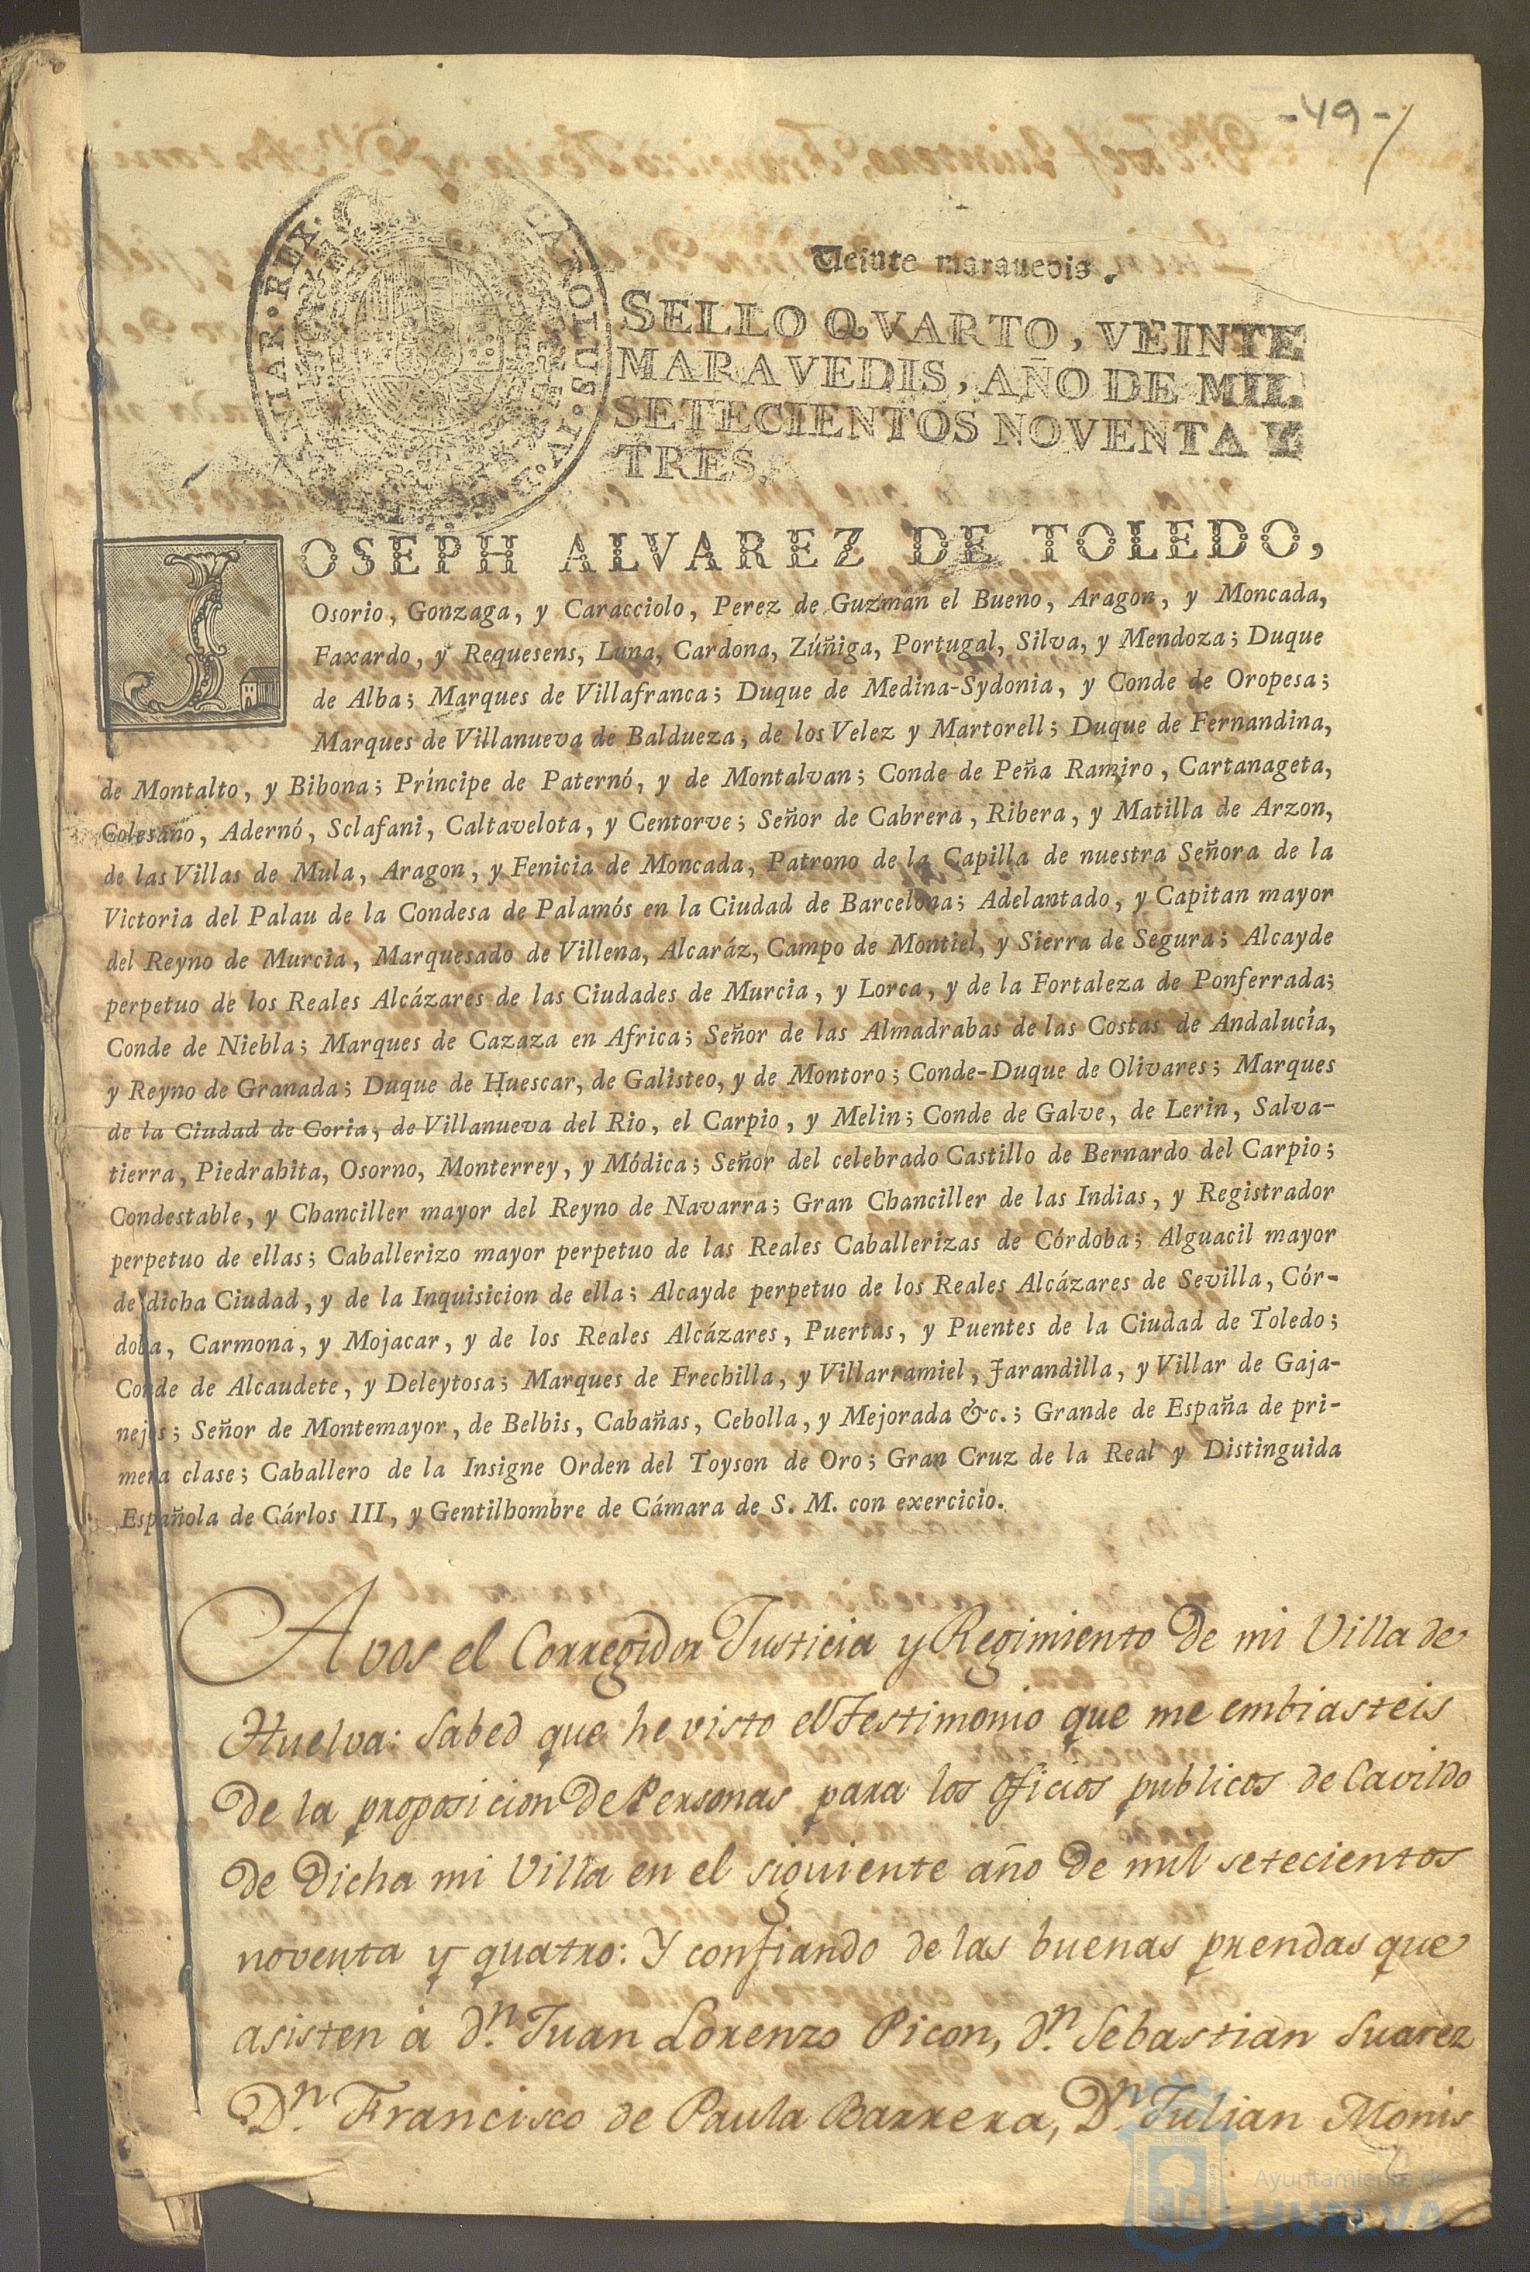 -49-
Veinte maravedis.
CAROLUS
REX
SELLO QVARTO, VEINTE
MARAVEDIS, AÑO DE MIL
SETECIENTOS NOVENTA Y
TRES.
JOSEPH ALVAREZ DE TOLEDO,
Osorio, Gonzaga, y Caracciolo, Perez de Guzmán el Bueno, Aragon, y Moncada,
Faxardo, y Requesens, Luna, Cardona, Zúñiga, Portugal, Silva, y Mendoza; Duque
de Alba; Marques de Villafranca; Duque de Medina-Sydonia, y Conde de Oropesa;
Marques de Villanueva de Baldueza, de los Velez y Martorell; Duque de Fernandina,
de Montalto, y Bibona; Príncipe de Paternó, y de Montalvan; Conde de Peña Ramiro, Cartanageta,
Colesano, Adernó, Sclafani, Caltavelota, y Centorve; Señor de Cabrera, Ribera, y Matilla de Arzon,
de las Villas de Mula, Aragon, y Fenicia de Moncada, Patrono de la Capilla de nuestra Señora de la
Victoria del Palau de la Condesa de Palamós en la Ciudad de Barcelona; Adelantado, y Capitan mayor
del Reyno de Murcia, Marquesado de Villena, Alcaráz, Campo de Montiel, y Sierra de Segura; Alcayde
perpetuo de los Reales Alcázares de las Ciudades de Murcia, y Lorca, y de la Fortaleza de Ponferrada;
Conde de Niebla; Marques de Cazaza en Africa; Señor de las Almadrabas de las Costas de Andalucía,
y Reyno de Granada; Duque de Huescar, de Galisteo, y de Montoro; Conde-Duque de Olivares; Marques
de la Ciudad de Coria, de Villanueva del Rio, el Carpio, y Melin; Conde de Galve, de Lerin, Salva-
tierra, Piedrahita, Osorno, Monterrey, y Módica; Señor del celebrado Castillo de Bernardo del Carpio;
Condestable, y Chanciller mayor del Reyno de Navarra; Gran Chanciller de las Indias, y Registrador
perpetuo de ellas; Caballerizo mayor perpetuo de las Reales Caballerizas de Córdoba; Alguacil mayor
de dicha Ciudad, y de la Inquisicion de ella; Alcayde perpetuo de los Reales Alcázares de Sevilla, Cór-
doba, Carmona, y Mojacar, y de los Reales Alcázares, Puertas, y Puentes de la Ciudad de Toledo;
Conde de Alcaudete, y Deleytosa; Marques de Frechilla, y Villarramiel, Jarandilla, y Villar de Gaja-
nejos; Señor de Montemayor, de Belbis, Cabañas, Cebolla, y Mejorada &c.; Grande de España de pri-
mera clase; Caballero de la Insigne Orden del Toyson de Oro; Gran Cruz de la Real y Distinguida
Española de Cárlos III, y Gentilhombre de Cámara de S. M. con exercicio.
A vos el Corregidor Justicia y Regimiento de mi Villa de
Huelva: Sabed que he visto el Testimonio que me embiasteis
de la proposicion de Personas para los oficios publicos de Cavildo
de dicha mi Villa en el siguiente año de mil setecientos
noventa y quatro: Y confiando de las buenas prendas que
asisten á dn. Juan Lorenzo Picon, dn. Sebastian Suarez
Dn. Francisco de Paula Barrera, Dn. Julian Monis
Ayuntamiento de
HUELVA